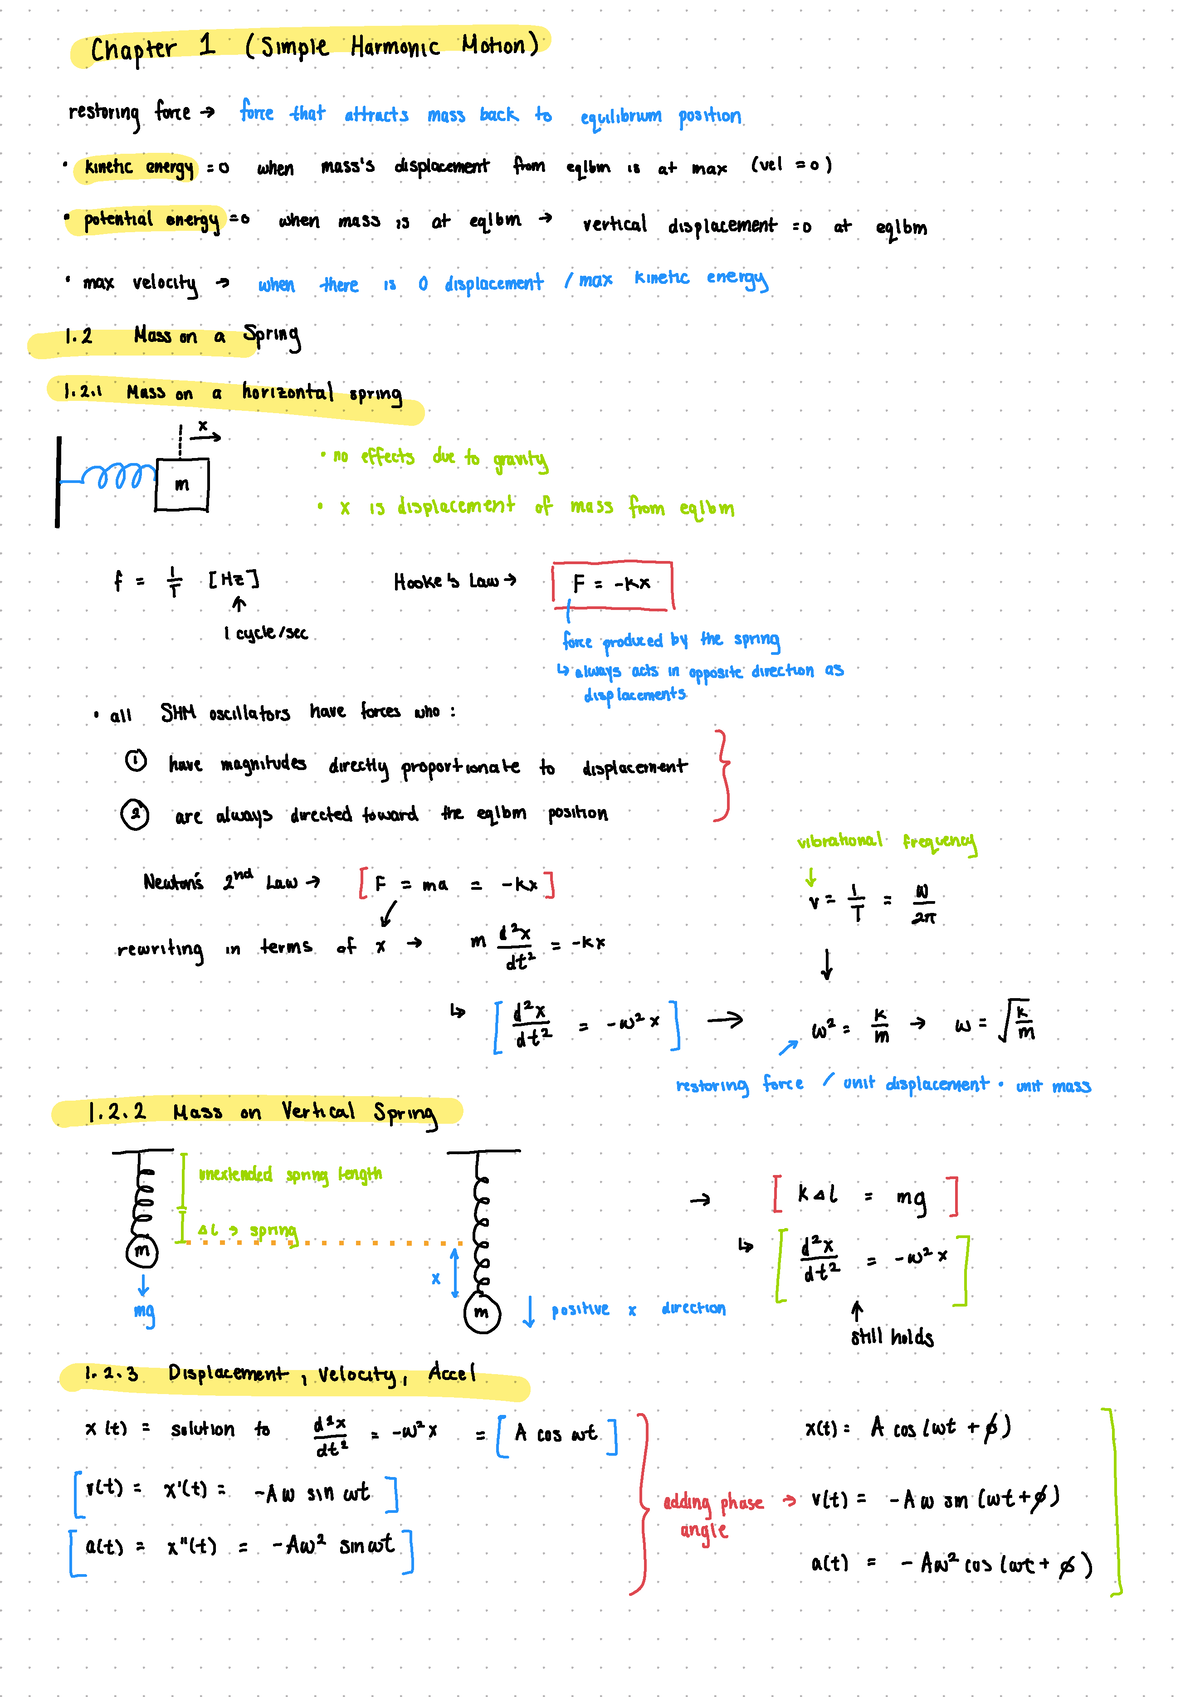 Chapter 1 (Simple Harmonic Motion)
restoring force → force that attracts mass back to equilibrum position
• kinetic energy = 0 when mass's displacement from eqlbm is at max (vel = 0)
• potential energy = 0 when mass is at eqlbm → vertical displacement = 0 at eqlbm
• max velocity → when there is 0 displacement / max kinetic energy
1.2 Mass on a Spring
1.2.1 Mass on a horizontal spring
x
m
• no effects due to gravity
• x is displacement of mass from eqlbm
f = 1/T [Hz]
↑
1 cycle/sec
Hooke's Law → F = -kx
force produced by the spring
↳ always acts in opposite direction as
displacements
• all SHM oscillators have forces who :
① have magnitudes directly proportionate to displacement
② are always directed toward the eqlbm position
Newton's 2nd Law → [F = ma = -kx]
rewriting in terms of x → m d²x/dt² = -kx
↳ [d²x/dt² = -ω²x] →
vibrational frequency
↓
v = 1/T = ω/2π
↓
ω² = k/m → ω = √k/m
restoring force / unit displacement • unit mass
1.2.2 Mass on Vertical Spring
unextended spring length
ΔL → spring
m
mg
x
m
↓ positive x direction
→ [kΔl = mg]
↳ [d²x/dt² = -ω²x]
↑
still holds
1.2.3 Displacement, Velocity, Accel
x(t) = solution to d²x/dt² = -ω²x = [A cos ωt]
[v(t) = x'(t) = -Aω sin ωt]
[a(t) = x"(t) = -Aω² sin ωt]
adding phase →
angle
x(t) = A cos (ωt + ϕ)
v(t) = -Aω sin (ωt + ϕ)
a(t) = -Aω² cos (ωt + ϕ)